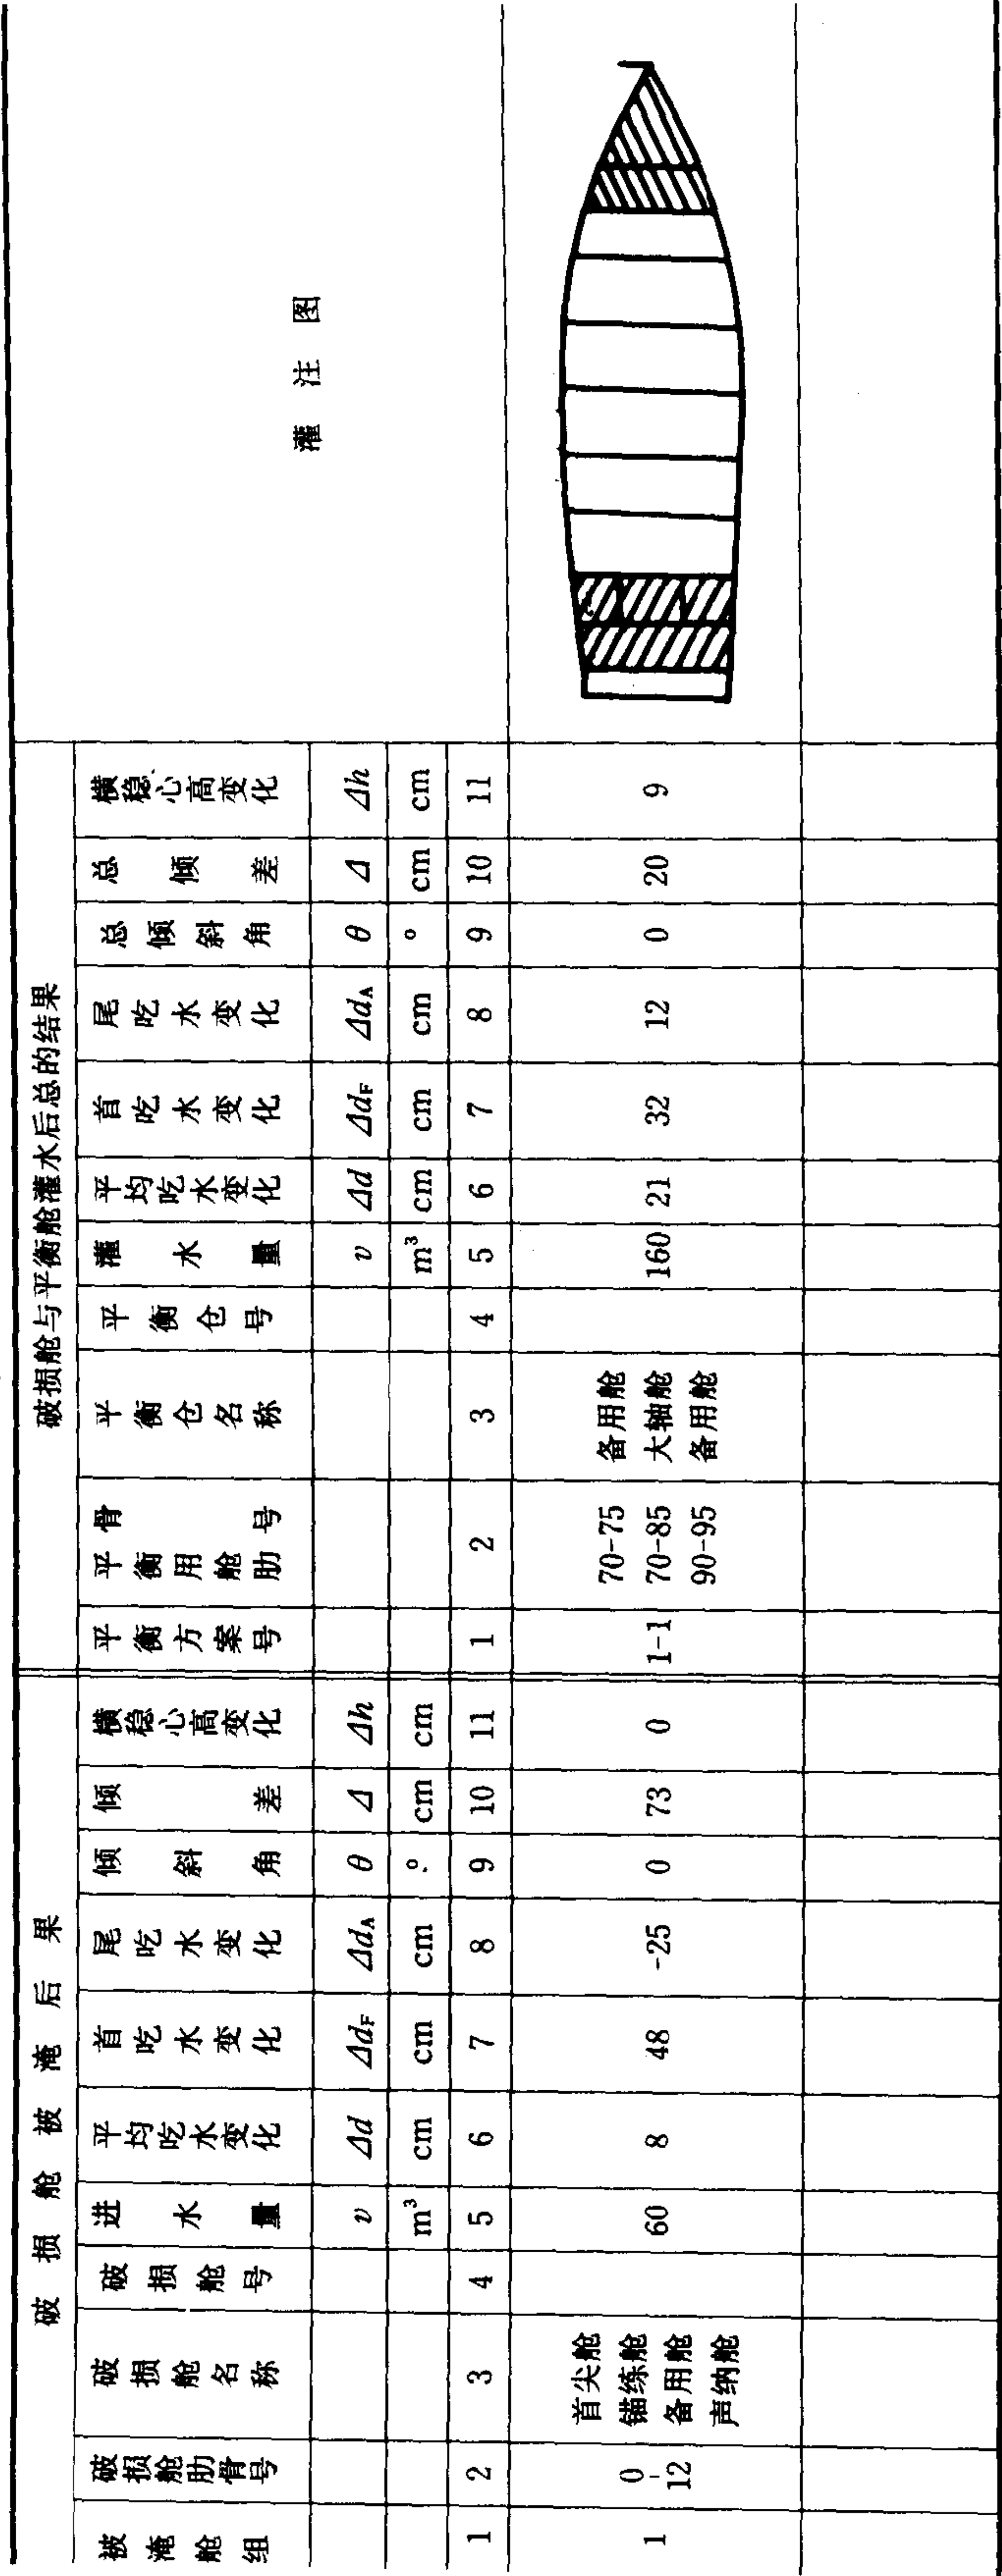 破损舱被淹后果 破损舱与平衡舱灌水后总的结果 灌注图
被淹舱组 破损舱肋骨号 破损舱名称 破损舱号 进水量 平均吃水变化 首吃水变化 尾吃水变化 倾斜角 倾差 横稳心高变化 平衡方案号 平衡用舱肋骨号 平衡仓名称 平衡仓号 灌水量 平均吃水变化 首吃水变化 尾吃水变化 总倾斜角 总倾差 横稳心高变化
v Δd ΔdF ΔdA θ Δ Δh v Δd ΔdF ΔdA θ Δ Δh
m³ cm cm cm ° cm cm m³ cm cm cm ° cm cm
1 2 3 4 5 6 7 8 9 10 11 1 2 3 4 5 6 7 8 9 10 11
1 0-12 首尖舱 锚练舱 备用舱 声纳舱 60 8 48 -25 0 73 0 1-1 70-75 70-85 90-95 备用舱 大轴舱 备用舱 160 21 32 12 0 20 9